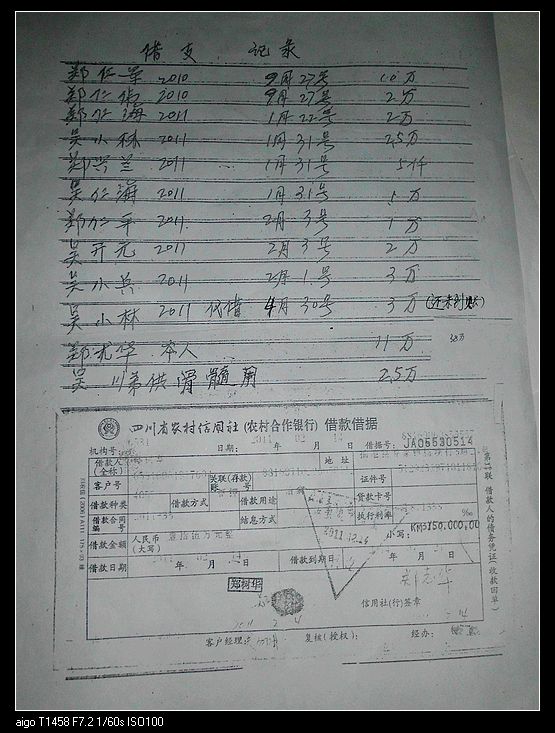 借支 记录
郑仁军 2010 9月27号 1.0万
郑仁伟 2010 9月27号 2万
郑仁海 2011 1月22号 2万
吴小林 2011 1月31号 2.5万
郑兴兰 2011 1月31号 5仟
吴仁海 2011 1月31号 1万
郑仁平 2011 2月3号 1万
吴开元 2011 2月3号 2万
吴小兵 2011 2月1号 3万
吴小林 2011 代借 4月30号 3万 (还未到账)
郑光华 本人 11万
吴 川弟供骨髓用 2.5万
四川省农村信用社(农村合作银行)借款借据
机构号 日期: 2011 年 02 月 14 日 借据号: JA05530514
借款人(全称) 地址
客户号 关联(存款)账号 证件号
借款种类 借款方式 借款用途 贷款卡号
借款合同编号 结息方式 执行利率 ‰
借款金额 人民币(大写) 壹拾伍万元整 小写: RMB150,000.00
2011.12.26
借款日期 年 月 日 借款到期日 年 月 日
郑树华
信用社(行)签章
客户经理: 复核(授权): 经办:
第二联 借款人的借款凭证(收款回单)
aigo T1458 F7.2 1/60s ISO100